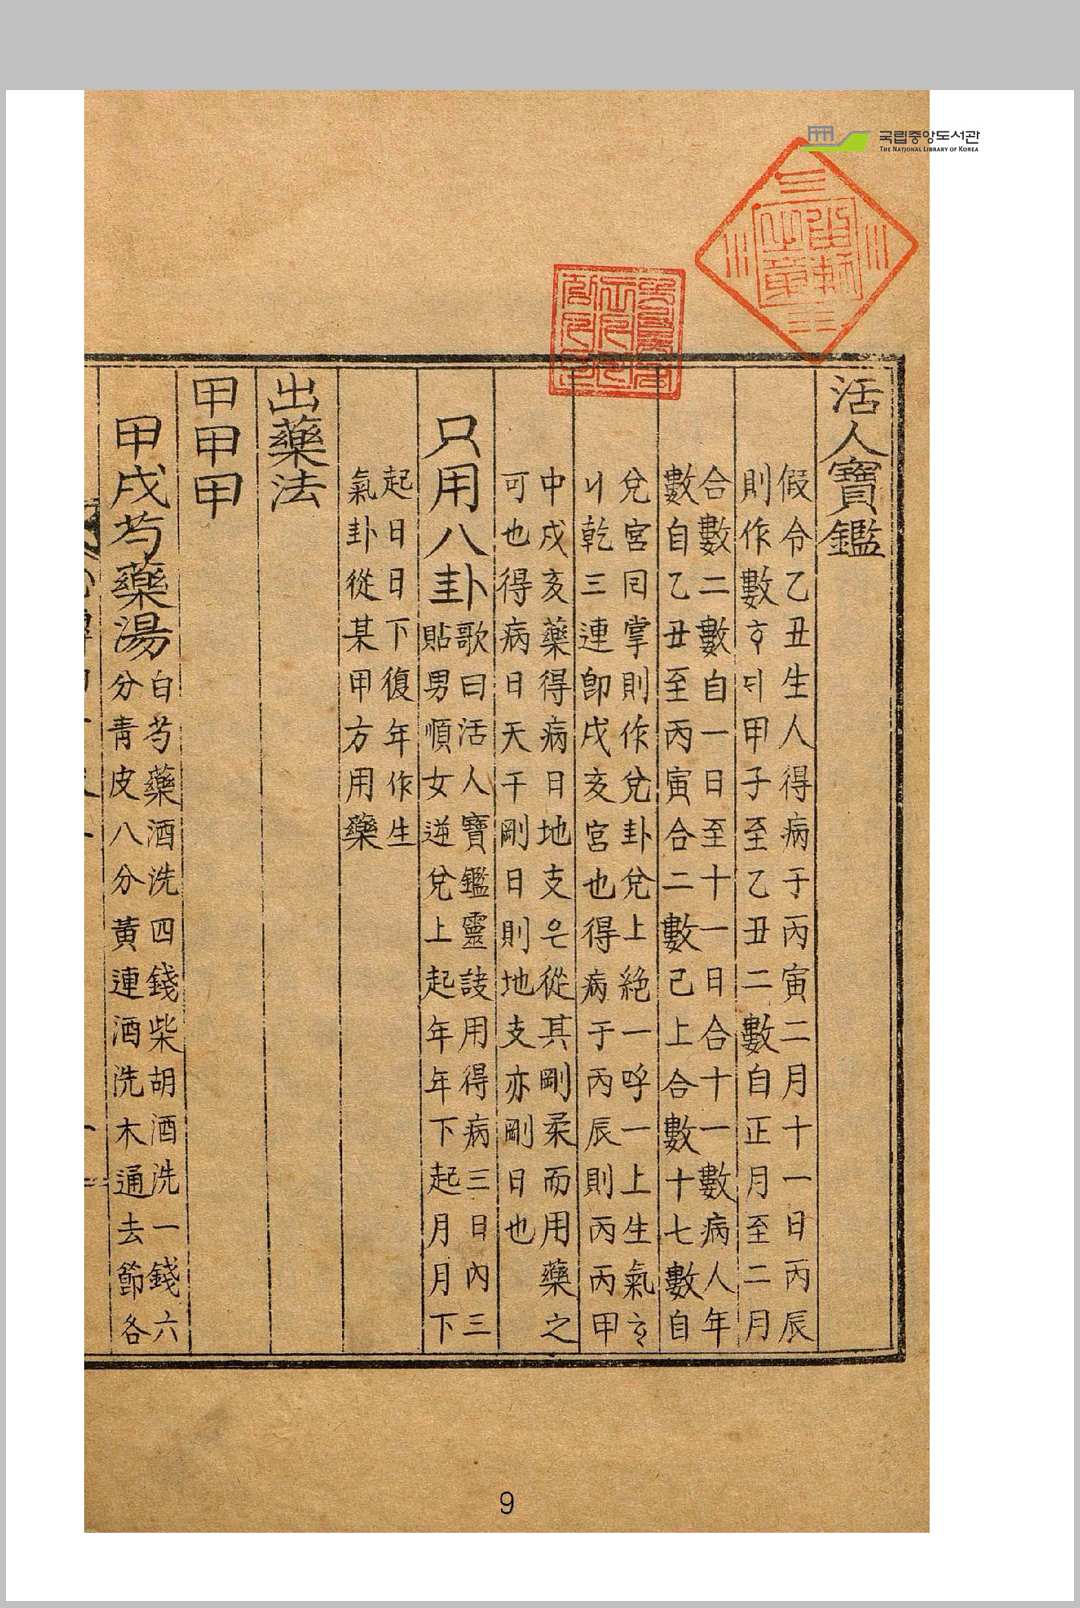 국립중앙도서관
THE NATIONAL LIBRARY OF KOREA
活人寶鑑
假令乙丑生人得病于丙寅二月十一日丙辰
則作數ᄒᆞ되甲子至乙丑二數自正月至二月
合數二數自一日至十一日合十一數病人年
數自乙丑至丙寅合二數已上合數十七數自
兌宮同掌則作兌卦兌上絶一呼一上生氣ᄒᆞ
니乾三連卽戌亥宮也得病于丙辰則丙丙甲
中戌亥藥得病日地支은從其剛柔而用藥之
可也得病日天干剛日則地支亦剛日也
只用八卦
歌曰活人寶鑑靈訣用得病三日內三
貼男順女逆兌上起年年下起月月下
起日日下復年作生
氣卦從某甲方用藥
出藥法
甲甲甲
甲戌芍藥湯
白芍藥酒洗四錢柴胡酒洗一錢六
分靑皮八分黃連酒洗木通去節各
9